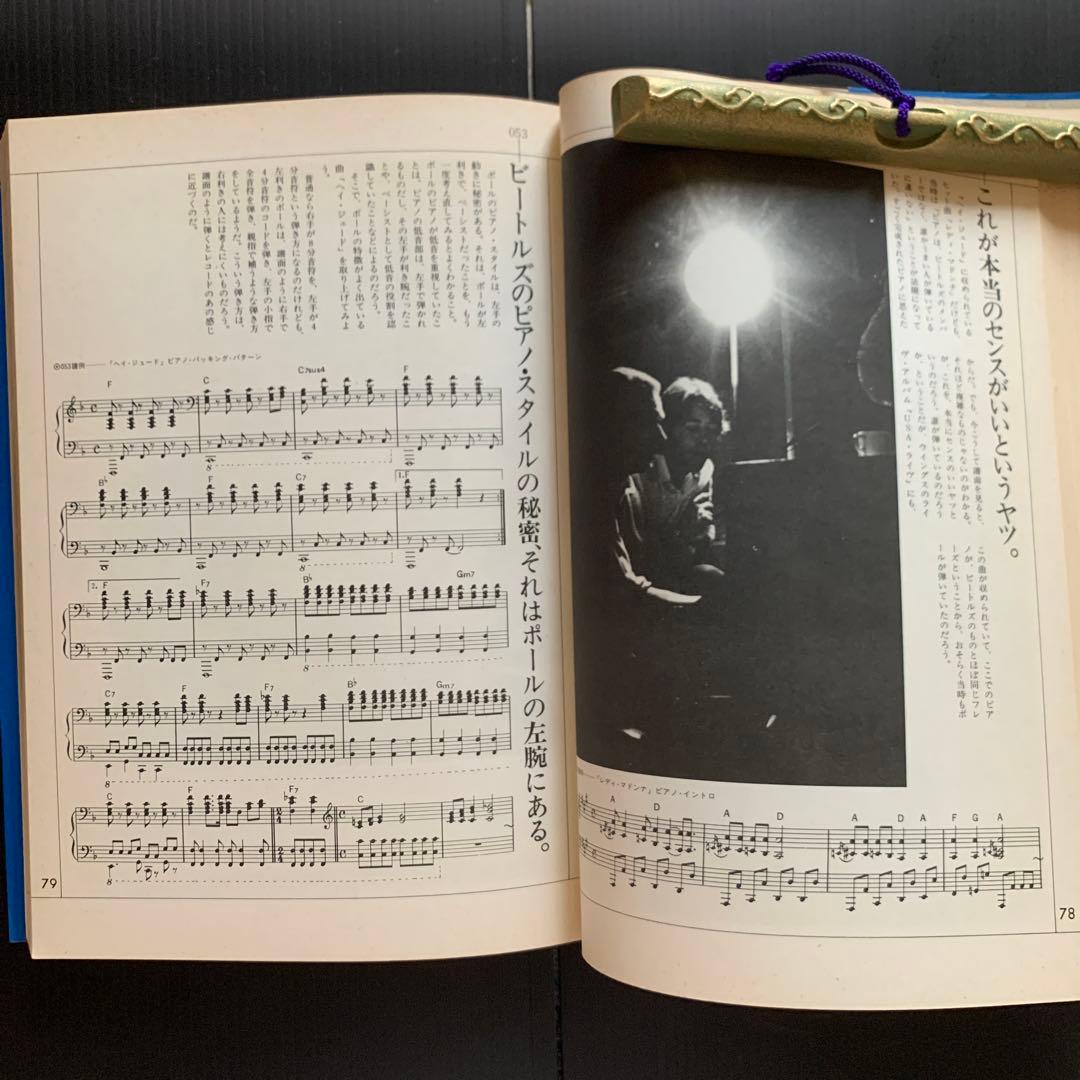 これが本当のセンスがいいというヤツ。
「ヘイ・ジュード」に収められている
ヒット曲「レディ・マドンナ」だけども、
当時は「ピアノは、ビートルズのメンバ
ーではなくて、誰かうまい人が弾いている
に違いない」ということが話題になって
いた。すごく完成されたピアノに思えた
からだ。でも、今こうして譜面を見ると、
それほど複雑なものじゃないのがわかる。
が、これを、本当にセンスのいいヤツと
いうのだろう。誰が弾いているのだろう
か、ということだが、ウイングスのライ
ヴ・アルバム「USA・ライヴ」にも、
この曲が収められていて、ここでのピア
ノが、ビートルズのものとほぼ同じフレ
ーズということから、おそらく当時もポ
ールが弾いていたのだろう。
「レディ・マドンナ」ピアノ・イントロ
A D A D A D A F G A
78
053
ビートルズのピアノ・スタイルの秘密、それはポールの左腕にある。
ポールのピアノ・スタイルは、左手の
動きに秘密がある。それは、ポールが左
利きで、ベーシストだったことを、もう
一度考え直してみるとよくわかること。
ポールのピアノが低音を重視していたこ
とは、ピアノの低音部は、左手で弾かれ
るものだし、その左手が利き腕だったこ
とや、ベーシストとして低音の役割を認
識していたことなどによるのだろう。
そこで、ポールの特徴がよく出ている
曲「ヘイ・ジュード」を取り上げてみよ
う。
普通なら右手が8分音符を、左手が4
分音符という弾き方になるのだけれども、
左利きのポールは、譜面のように右手で
4分音符のコードを弾き、左手の小指で
全音符を弾き、親指で補うような弾き方
をしているようだ。こういう弾き方は、
右利きの人には考えにくいものだろう。
譜面のように弾くとレコードのあの感じ
に近づくのだ。
053譜例——「ヘイ・ジュード」ピアノ・バッキング・パターン
F C C7sus4 F
8
B♭ F C7 1. F
8
2. F F7 B♭ Gm7
8
C7 F F7 B♭ Gm7
8
C F F7 C
8
79